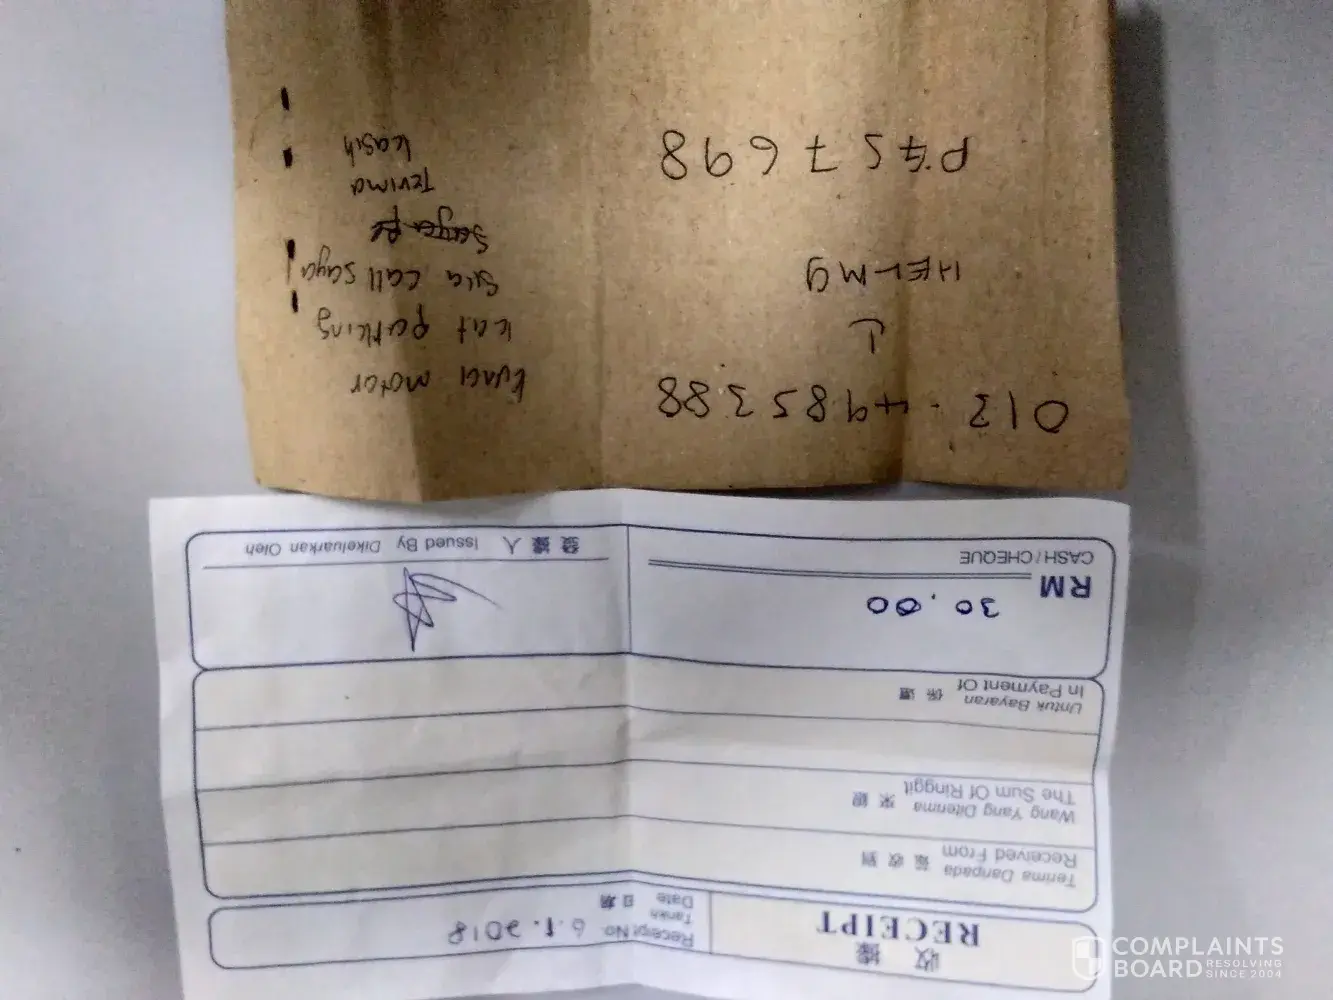 收據
RECEIPT
Receipt No.
Tarikh
Date 日期 6.1.2018
Terima Daripada 茲收到
Received From
Wang Yang Diterima 來銀
The Sum Of Ringgit
Untuk Bayaran 係還
In Payment Of
RM 30.00
CASH / CHEQUE
發據人 Issued By Dikeluarkan Oleh
013-4985388
HELMY
7698
Kunci motor
kat parking
sila call saya
Terima
kasih
COMPLAINTS
BOARD RESOLVING
SINCE 2004